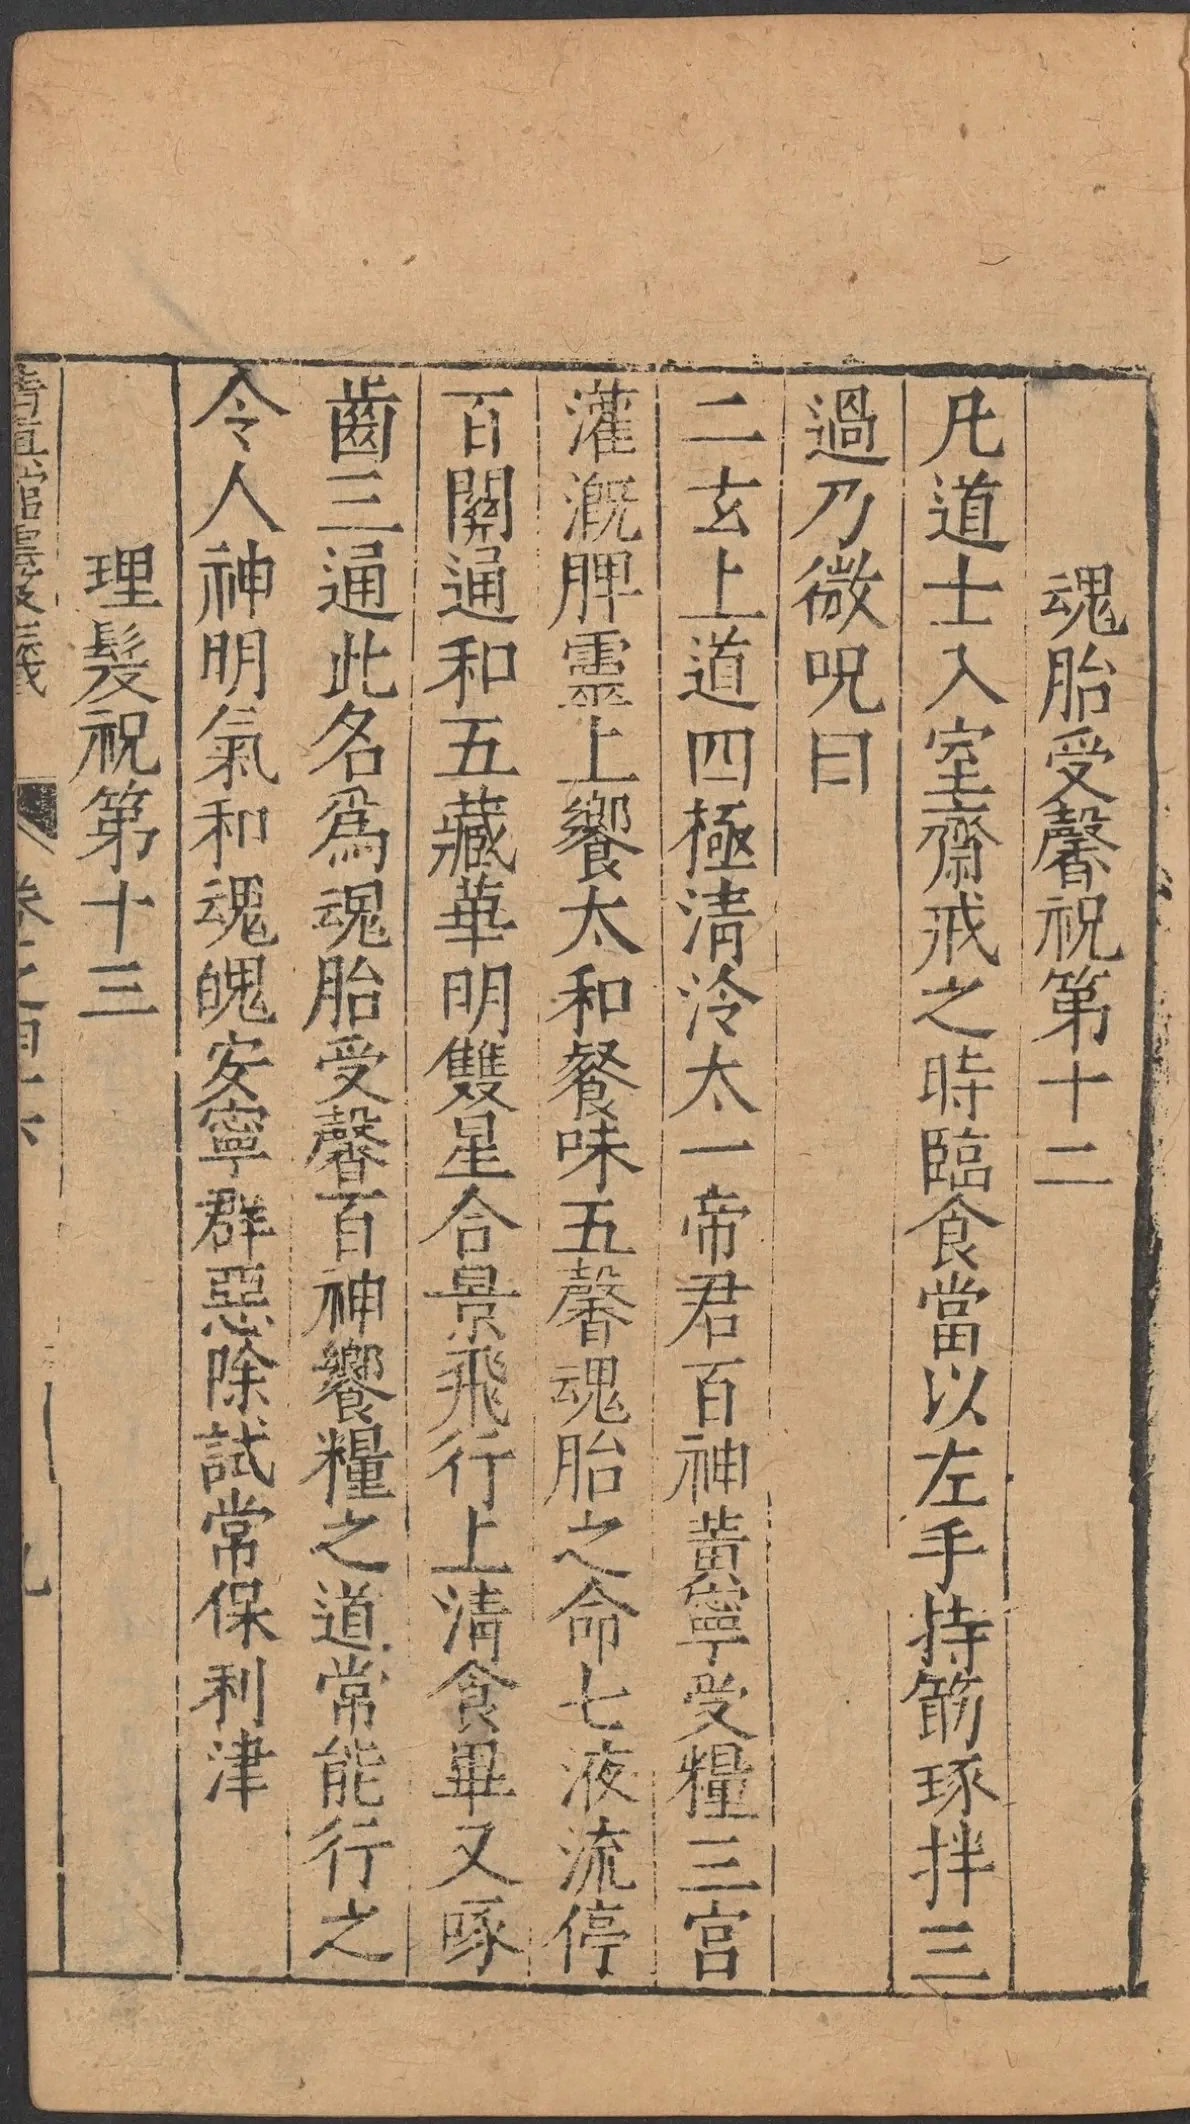 魂胎受馨祝第十二
凡道士入室齋戒之時臨食當以左手持筯琢拌三
過乃微呪曰
二玄上道四極清泠太一帝君百神黃寧受糧三宮
灌溉脾靈上饗太和餐味五馨魂胎之命七液流停
百關通和五藏華明雙星合景飛行上清食畢又啄
齒三通此名爲魂胎受馨百神饗糧之道常能行之
令人神明氣和魂魄安寧群惡除試常保利津
理髮祝第十三